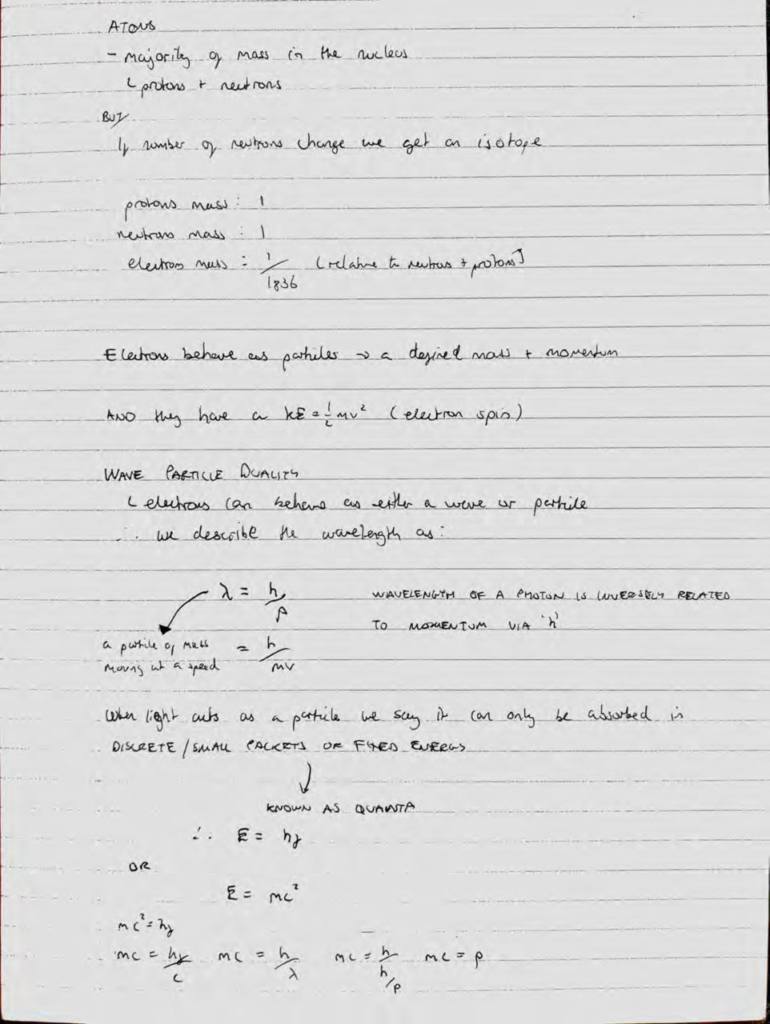 ATOMS
- majority of mass in the nucleus
└ protons + neutrons
BUT
If number of neutrons change we get an isotope
protons mass : 1
neutrons mass : 1
electrons mass : 1/1836 (relative to neutrons + protons]
Electrons behave as particles → a defined mass + momentum
AND they have a KE = ½mv² (electron spin)
WAVE PARTICLE DUALITY
└ electrons can behave as either a wave or particle
∴ we describe the wavelength as:
λ = h/p WAVELENGTH OF A PHOTON IS INVERSELY RELATED
TO MOMENTUM VIA 'h'
a particle of mass = h/mv
moving at a speed
When light acts as a particle we say it can only be absorbed in
DISCRETE / SMALL PACKETS OF FIXED ENERGY
KNOWN AS QUANTA
∴ E = hf
OR
E = mc²
mc² = hf
mc = hf/c mc = h/λ mc = h/h/p mc = p